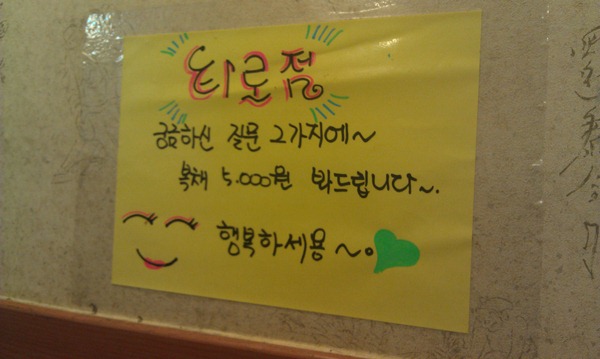 타로점
궁금하신 질문 2가지에~
복채 5.000원 봐드립니다~.
행복하세용~。